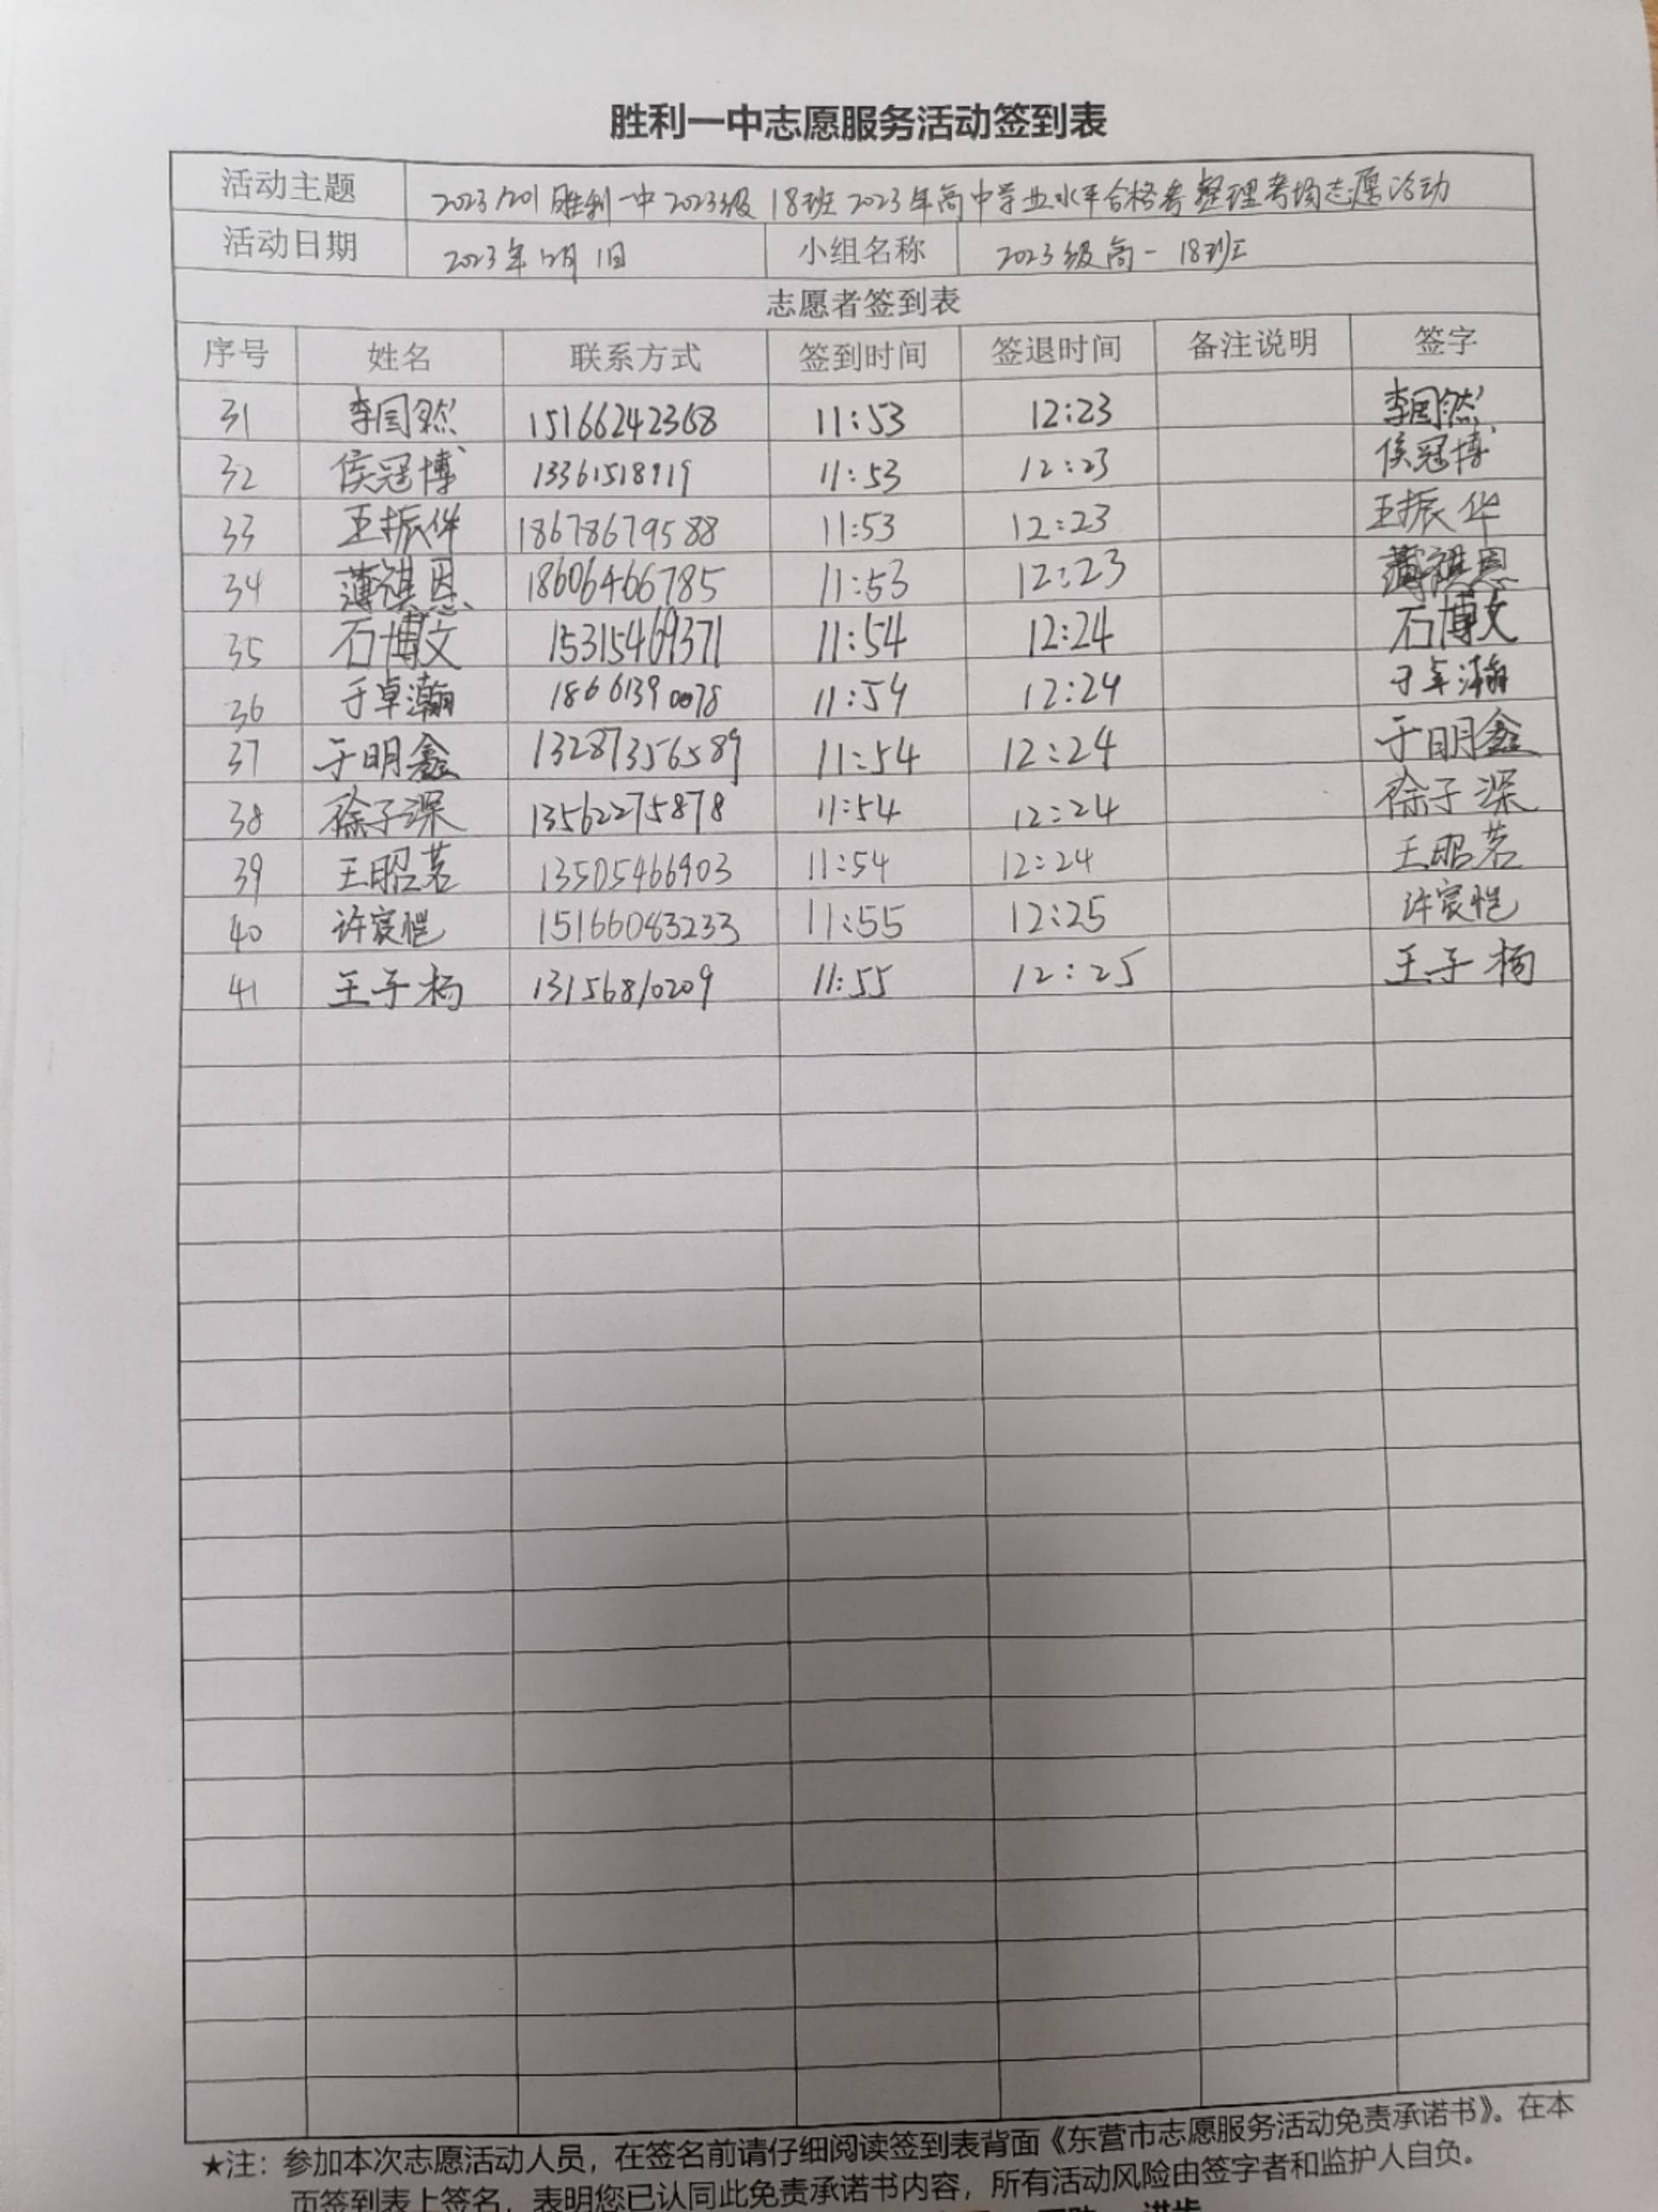 胜利一中志愿服务活动签到表
活动主题 20231201胜利一中2023级18班2023年高中学业水平合格考整理考场志愿活动
活动日期 2023年12月1日 小组名称 2023级高一18班
志愿者签到表
序号 姓名 联系方式 签到时间 签退时间 备注说明 签字
31 李国然 15166242368 11:53 12:23 李国然
32 侯冠博 13361518919 11:53 12:23 侯冠博
33 王振华 18678679588 11:53 12:23 王振华
34 薄祺恩 18606466785 11:53 12:23 薄祺恩
35 石博文 15315469371 11:54 12:24 石博文
36 于卓瀚 18661390078 11:54 12:24 于卓瀚
37 于明鑫 13287356589 11:54 12:24 于明鑫
38 徐子深 13562275878 11:54 12:24 徐子深
39 王昭茗 13505466903 11:54 12:24 王昭茗
40 许宸恺 15166083233 11:55 12:25 许宸恺
41 王子杨 13156810209 11:55 12:25 王子杨
★注：参加本次志愿活动人员，在签名前请仔细阅读签到表背面《东营市志愿服务活动免责承诺书》。在本
页签到表上签名，表明您已认同此免责承诺书内容，所有活动风险由签字者和监护人自负。
进步